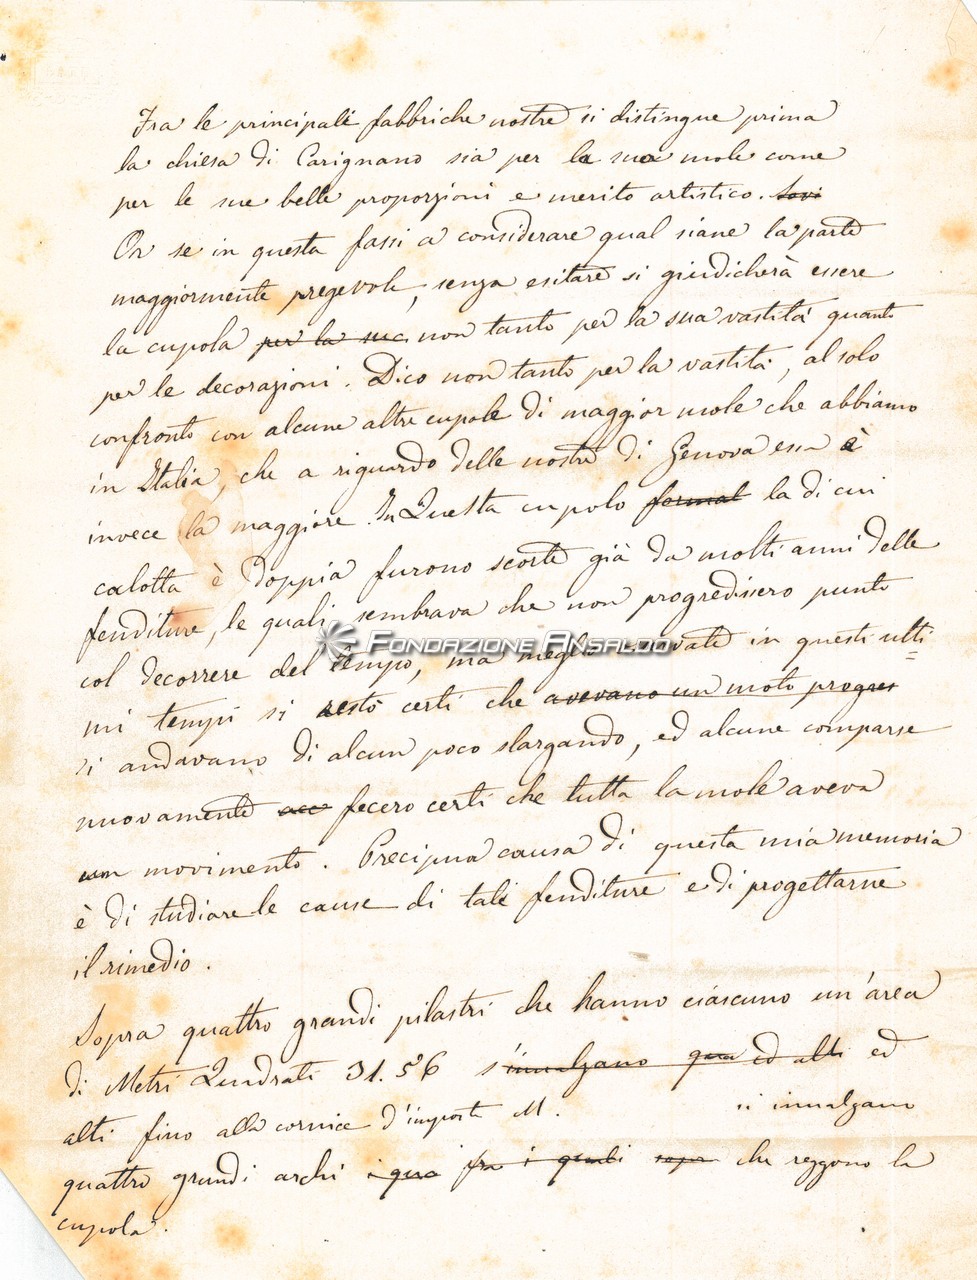 Fra le principali fabbriche nostre si distingue prima
la chiesa di Carignano sia per la sua mole come
per le sue belle proporzioni e merito artistico. Sovi
Or se in questa fassi a considerare qual siane la parte
maggiormente pregevole, senza esitare si giudicherà essere
la cupola per la sue non tanto per la sua vastità quanto
per le decorazioni. Dico non tanto per la vastità, al solo
confronto con alcune altre cupole di maggior mole che abbiamo
in Italia, che a riguardo delle nostre di Genova essa è
invece la maggiore. In Questa cupola formal la di cui
calotta è doppia furono scorte già da molti anni delle
fenditure, le quali sembrava che non progredissero punto
col decorrere del tempo, ma meglio osservate in questi ulti
FONDAZIONE ANSALDO
mi tempi si restò certi che avevano un moto progres
si andavano di alcun poco slargando, ed alcune comparse
nuovamente acc fecero certi che tutta la mole aveva
un movimento. Precipua causa di questa mia memoria
è di studiare le cause di tali fenditure e di progettarne
il rimedio.
Sopra quattro grandi pilastri che hanno ciascuno un'area
di Metri Quadrati 31.56 s'innalzano qua ed alti ed
alti fino alla cornice d'imposta M. si innalzano
quattro grandi archi i qua fra i quali sopr che reggono la
cupola.